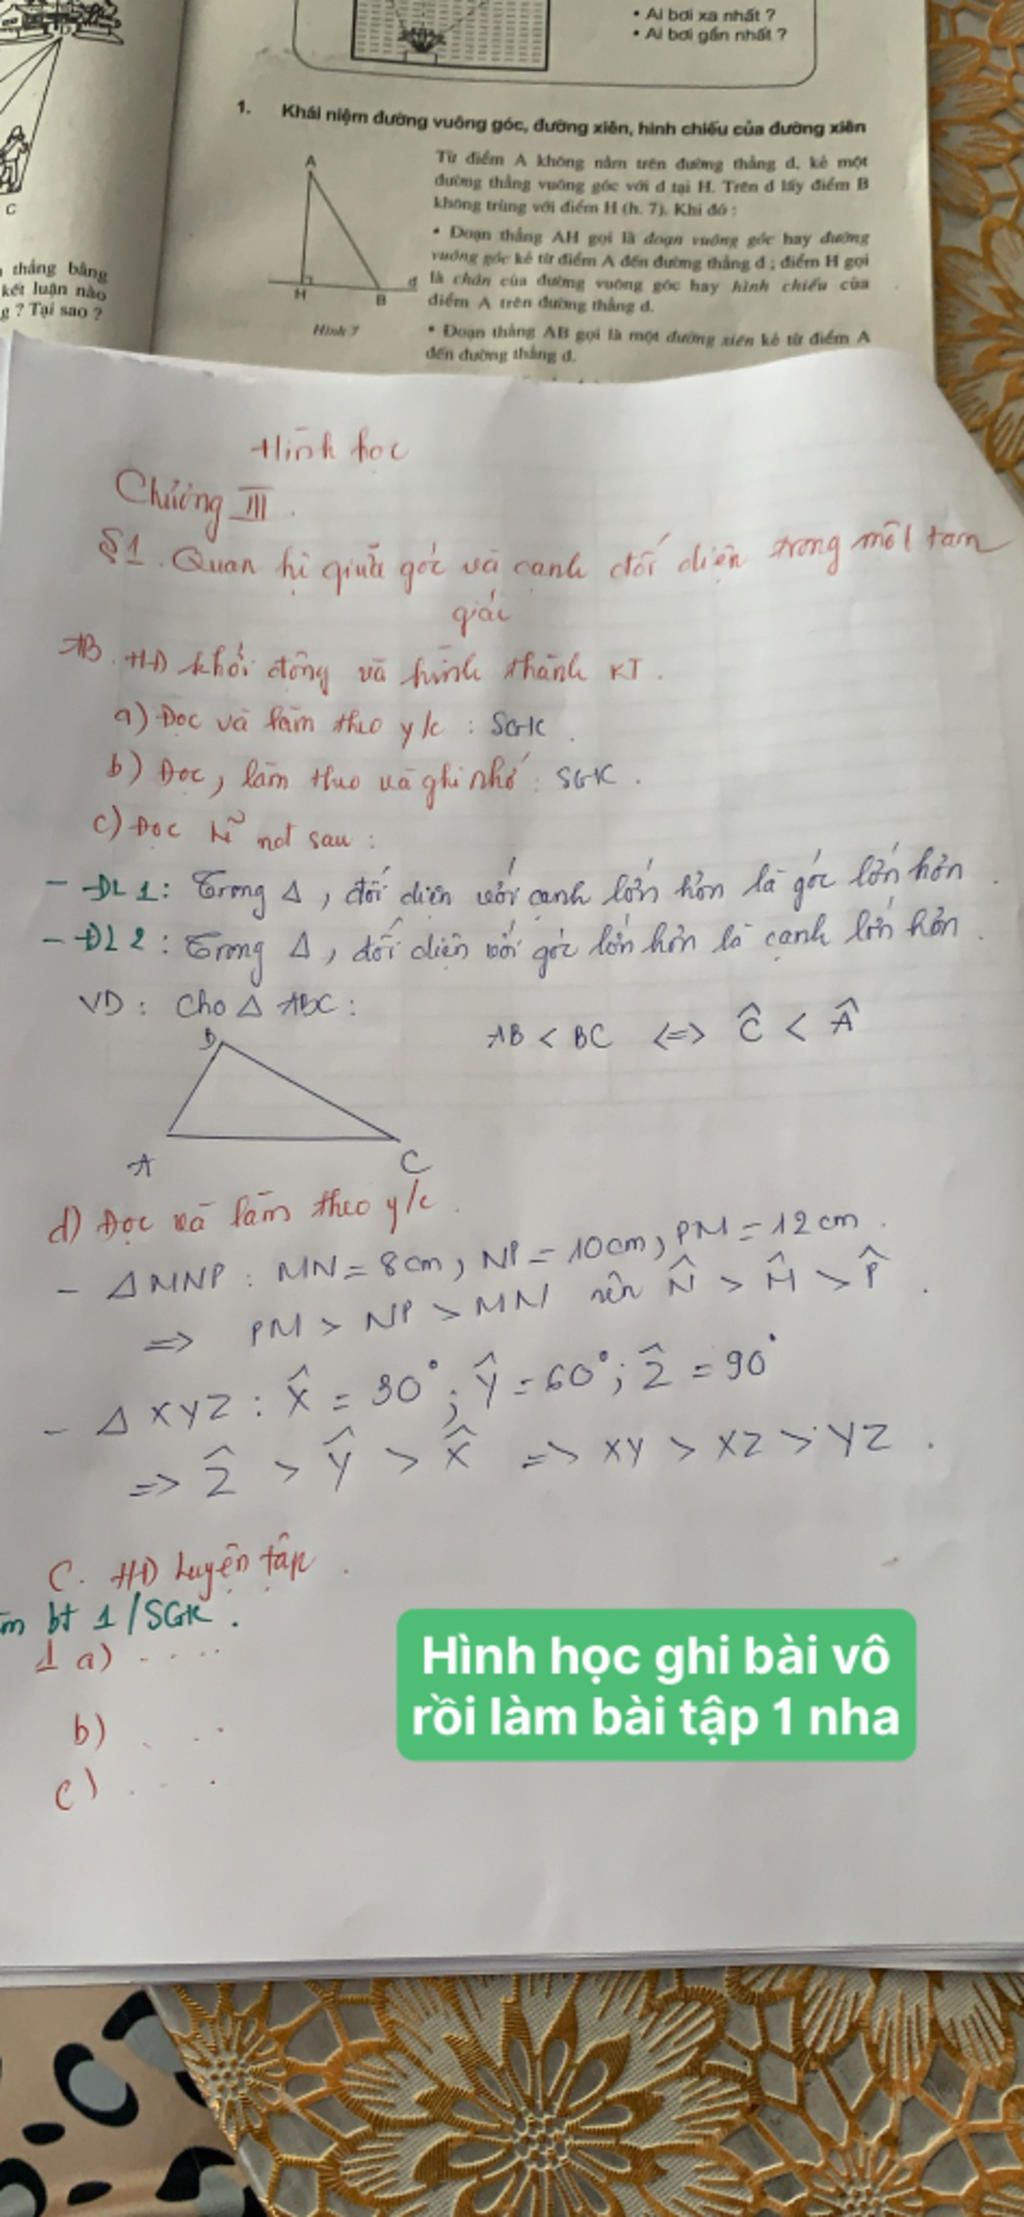 • Ai bơi xa nhất ?
• Ai bơi gần nhất ?
1. Khái niệm đường vuông góc, đường xiên, hình chiếu của đường xiên
A
H
B
d
Hình 7
Từ điểm A không nằm trên đường thẳng d, kẻ một
đường thẳng vuông góc với d tại H. Trên d lấy điểm B
không trùng với điểm H (h. 7). Khi đó :
• Đoạn thẳng AH gọi là đoạn vuông góc hay đường
vuông góc kẻ từ điểm A đến đường thẳng d ; điểm H gọi
là chân của đường vuông góc hay hình chiếu của
điểm A trên đường thẳng d.
• Đoạn thẳng AB gọi là một đường xiên kẻ từ điểm A
đến đường thẳng d.
C
thẳng bằng
kết luận nào
? Tại sao ?
Hình học
Chương III.
§1. Quan hệ giữa góc và cạnh đối diện trong một tam
giác
AB. HĐ khởi động và hình thành KT.
a) Đọc và làm theo y/c : SGK.
b) Đọc, làm theo và ghi nhớ : SGK.
c) Đọc kĩ nd sau :
- ĐL 1: Trong Δ, đối diện với cạnh lớn hơn là góc lớn hơn.
- ĐL 2 : Trong Δ, đối diện với góc lớn hơn là cạnh lớn hơn.
VD : Cho Δ ABC :
AB < BC <=> Ĉ < Â
B
A
C
d) Đọc và làm theo y/c.
- Δ MNP : MN = 8cm, NP = 10cm, PM = 12cm.
=> PM > NP > MN nên N̂ > M̂ > P̂.
- Δ XYZ : X̂ = 30°; Ŷ = 60°; Ẑ = 90°
=> Ẑ > Ŷ > X̂ => XY > XZ > YZ.
C. HĐ Luyện tập.
bt 1/SGK.
1 a) ....
b) . . .
c) . . .
Hình học ghi bài vô
rồi làm bài tập 1 nha